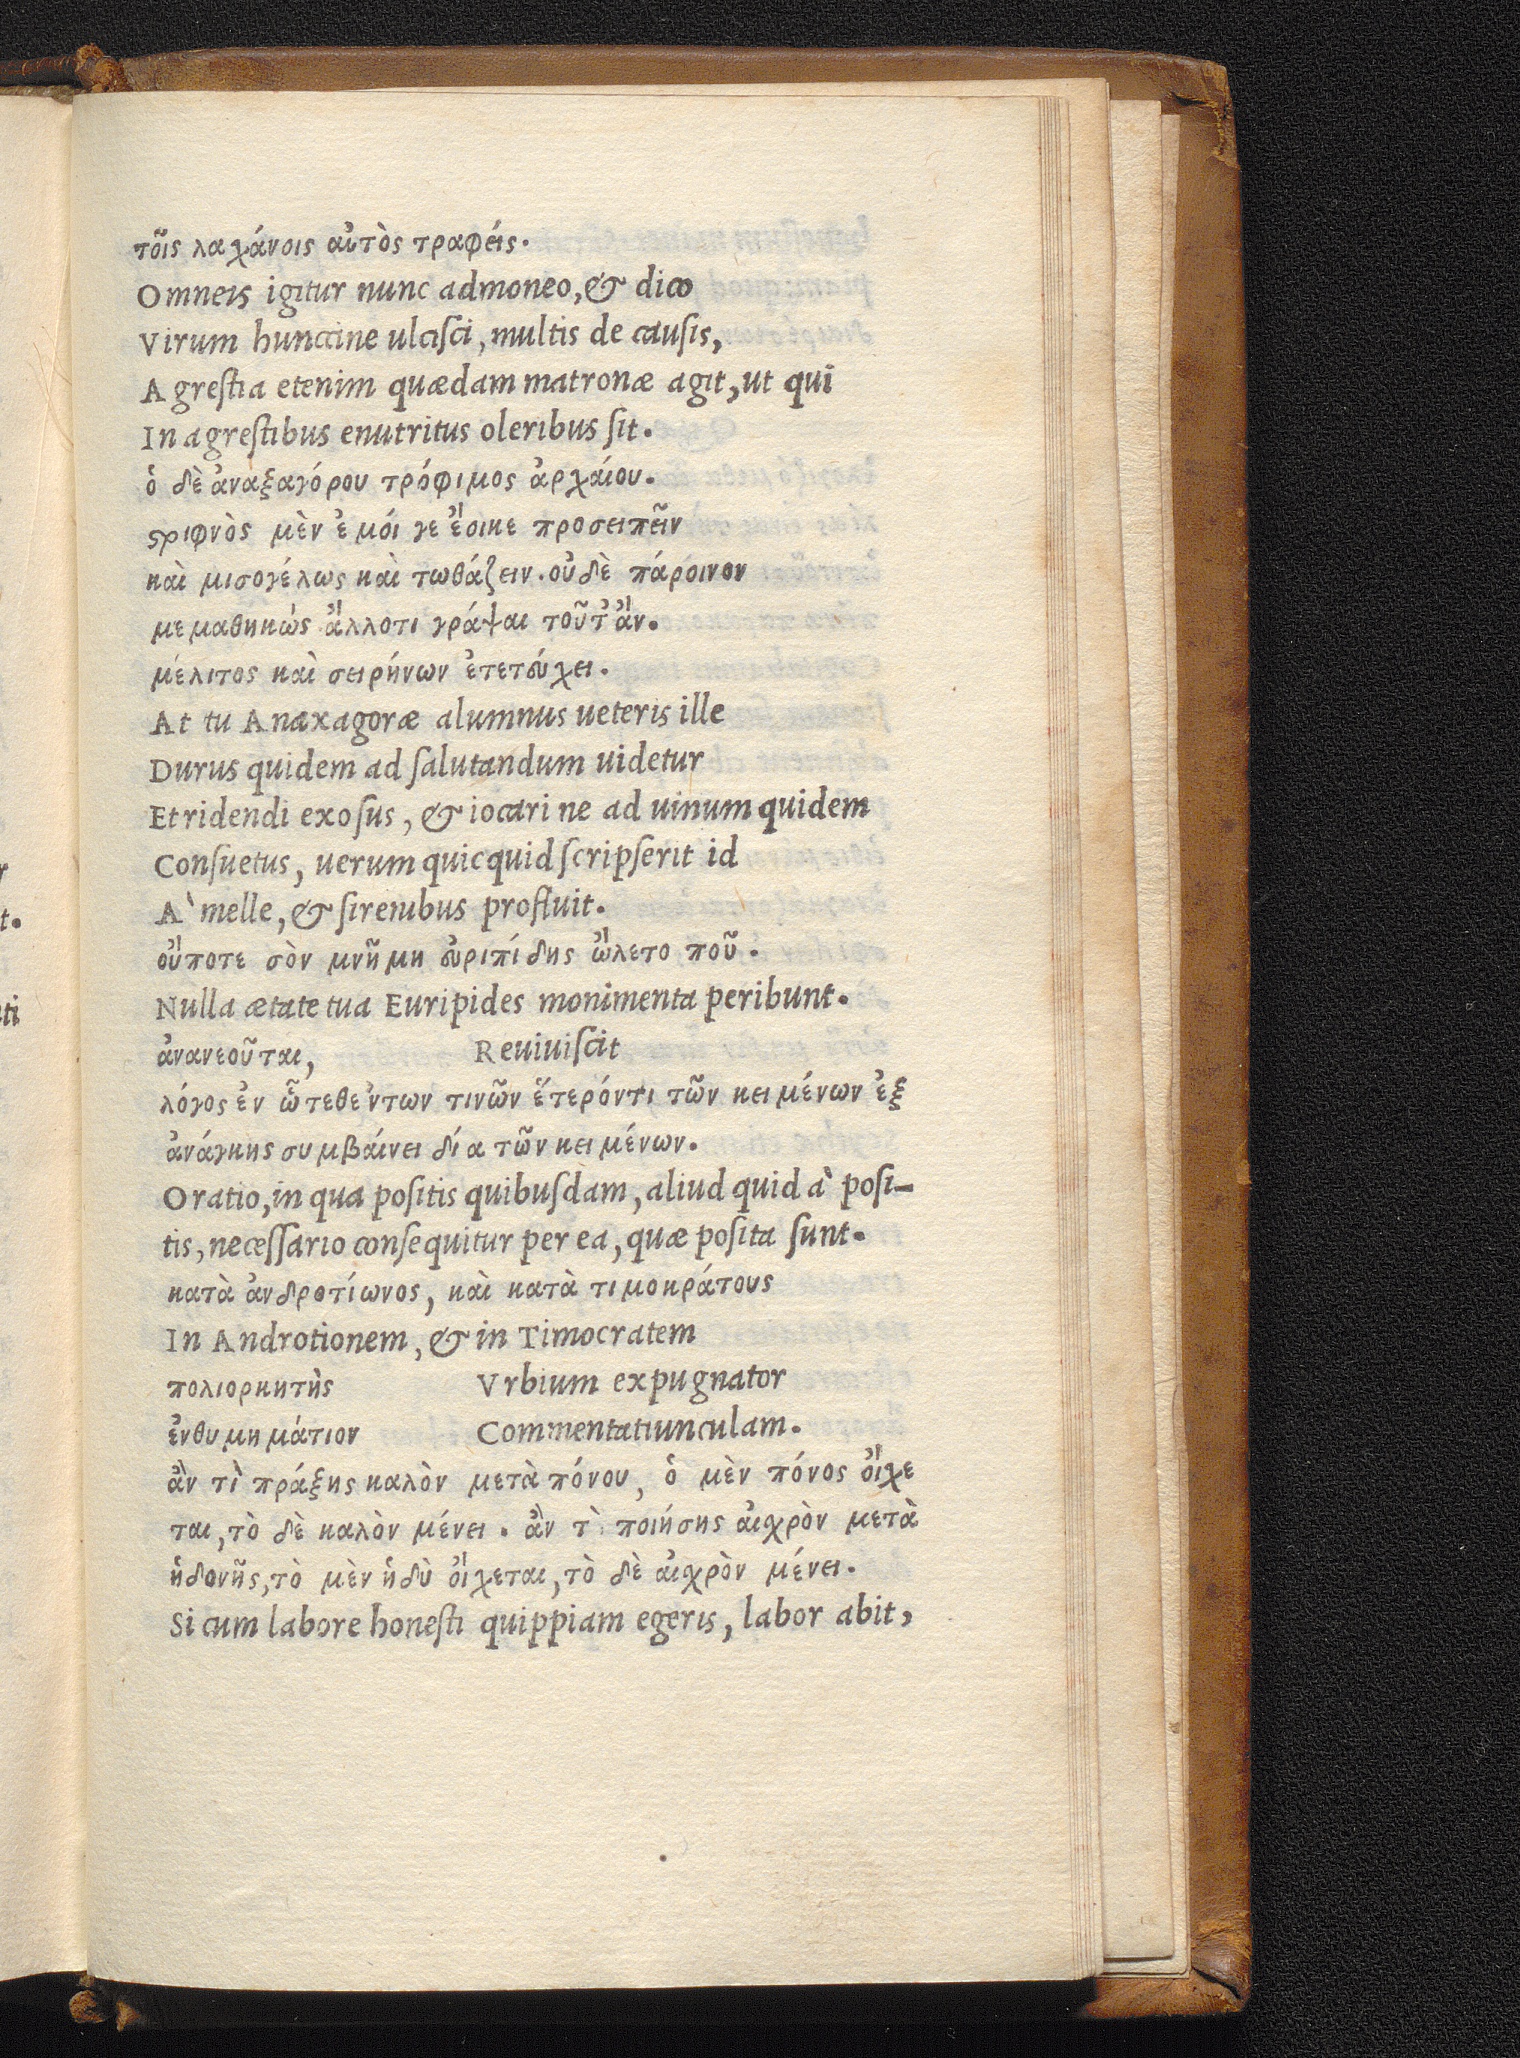 τοῖς λαχάνοις αὐτὸς τραφείς.
Omneis igitur nunc admoneo, & dico
Virum hunccine ulciſci, multis de cauſis,
Agreſtia etenim quædam matronæ agit, ut qui
In agreſtibus enutritus oleribus ſit.
ὁ δὲ ἀναξαγόρου τρόφιμος ἀρχαίου.
ςριφνὸς μὲν ἐμόι γε ἔοικε προσειπεῖν
καὶ μισογέλως καὶ τωθάζειν. οὐδὲ πάροινον
μεμαθηκώς ἄλλοτι γράψαι τοῦτ' ἄν.
μέλιτος καὶ σειρήνων ἐτετεύχει.
At tu Anaxagoræ alumnus ueteris ille
Durus quidem ad ſalutandum uidetur
Et ridendi exoſus, & iocari ne ad uinum quidem
Conſuetus, uerum quicquid ſcripſerit id
A` melle, & ſirenibus profluit.
οὔποτε σὸν μνῆμη ἐυριπίδης ὤλετο ποῦ.
Nulla ætate tua Euripides monimenta peribunt.
ἀνανεοῦται, Reuiuiſcit
λόγος ἐν ᾧ τεθεντων τινῶν ἕτερόντι τῶν κειμένων ἐξ
ἀνάγκης συμβάινει δία τῶν κειμένων.
Oratio, in qua poſitis quibuſdam, aliud quid à poſi-
tis, neceſſario conſequitur per ea, quæ poſita ſunt.
κατὰ ἀνδροτίωνος, καὶ κατὰ τιμοκράτους
In Androtionem, & in Timocratem
πολιορκητὴς Vrbium expugnator
ἐνθυμημάτιον Commentatiunculam.
ἂν τὶ πράξης καλὸν μετὰ πόνου, ὁ μὲν πόνος οἴχε
ται, τὸ δὲ καλὸν μένει. ἂν τὶ ποιήσης αἰσχρὸν μετὰ
ἡδονῆς, τὸ μὲν ἡδὺ οἴχεται, τὸ δὲ αἰσχρὸν μένει.
Si cum labore honeſti quippiam egeris, labor abit,